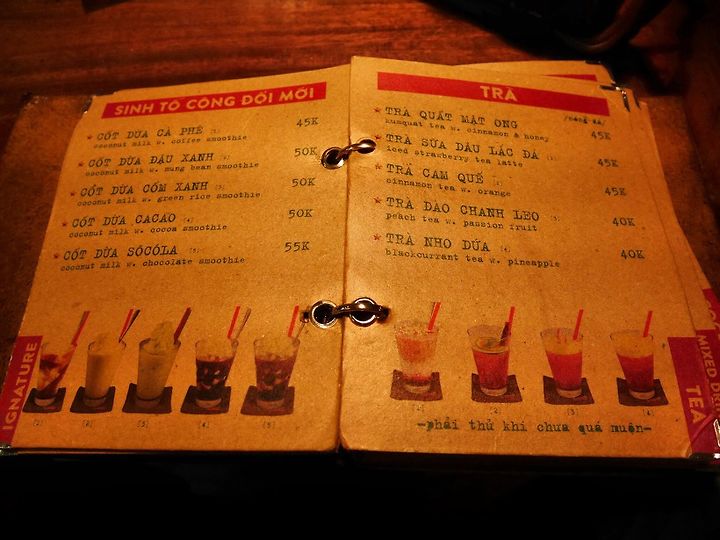 SINH TỐ CỘNG ĐỔI MỚI
★ CỐT DỪA CÀ PHÊ [1] 45K
coconut milk w. coffee smoothie
★ CỐT DỪA ĐẬU XANH [2] 50K
coconut milk w. mung bean smoothie
★ CỐT DỪA CỐM XANH [3] 50K
coconut milk w. green rice smoothie
★ CỐT DỪA CACAO [4] 50K
coconut milk w. cocoa smoothie
★ CỐT DỪA SÔCÔLA [5] 55K
coconut milk w. chocolate smoothie
[1] [2] [3] [4] [5]
IGNATURE
TRÀ
★ TRÀ QUẤT MẬT ONG /nóng đá/ 45K
kumquat tea w. cinnamon & honey
★ TRÀ SỮA DÂU LẮC ĐÁ [1] 45K
iced strawberry tea latte
★ TRÀ CAM QUẾ [2] 45K
cinnamon tea w. orange
★ TRÀ ĐÀO CHANH LEO [3] 40K
peach tea w. passion fruit
★ TRÀ NHO DỨA [4] 40K
blackcurrant tea w. pineapple
[1] [2] [3] [4]
-phải thử khi chưa quá muộn-
TEA
MIXED